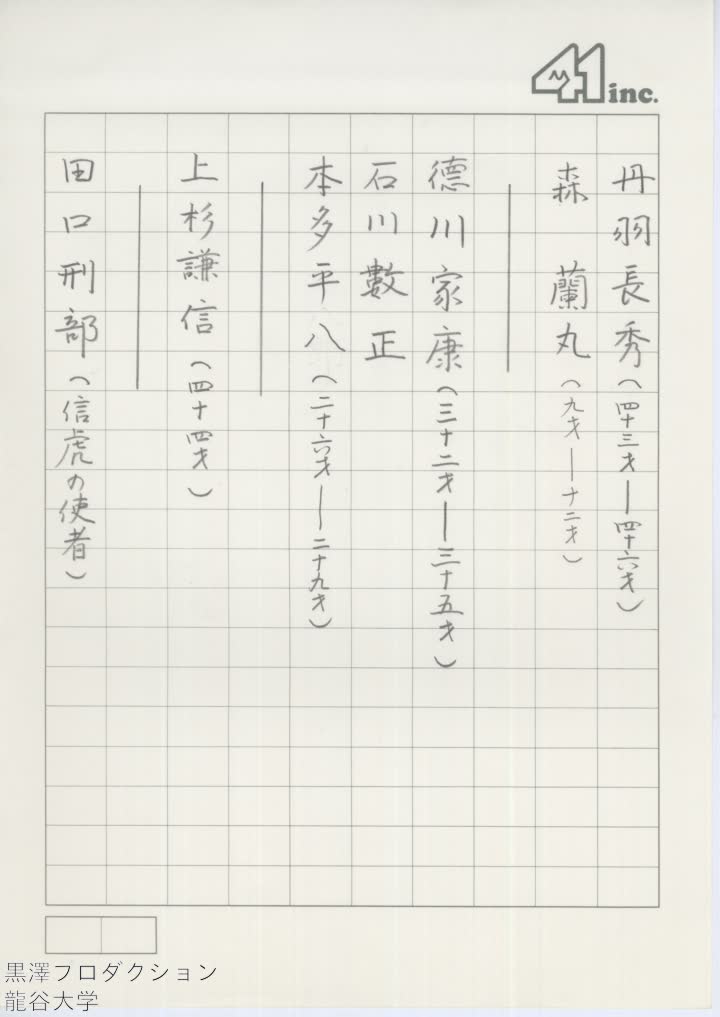 41 inc.
丹羽長秀(四十三才―四十六才)
森 蘭丸(九才―十二才)
徳川家康(三十二才―三十五才)
石川數正
本多平八(二十六才―二十九才)
上杉謙信(四十四才)
田口刑部(信虎の使者)
黒澤プロダクション
龍谷大学